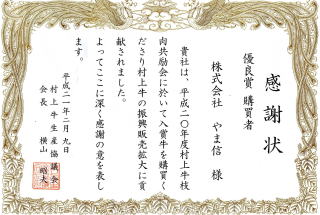 感謝状
優良賞 購買者
株式会社 やま信 様
貴社は、平成二〇年度村上牛枝
肉共励会に於いて入賞牛を購買く
ださり村上牛の振興販売拡大に貢
献されました。
よってここに深く感謝の意を表し
ます。
平成二一年二月九日
村上牛生産協議会
会長 横山